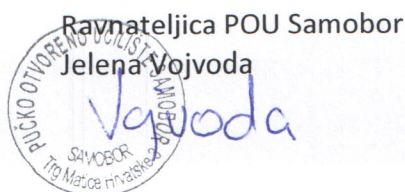 Ravnateljica POU Samobor
Jelena Vojvoda
PUČKO OTVORENO UČILIŠTE SAMOBOR
SAMOBOR
Trg Matice Hrvatske 3
Vojvoda